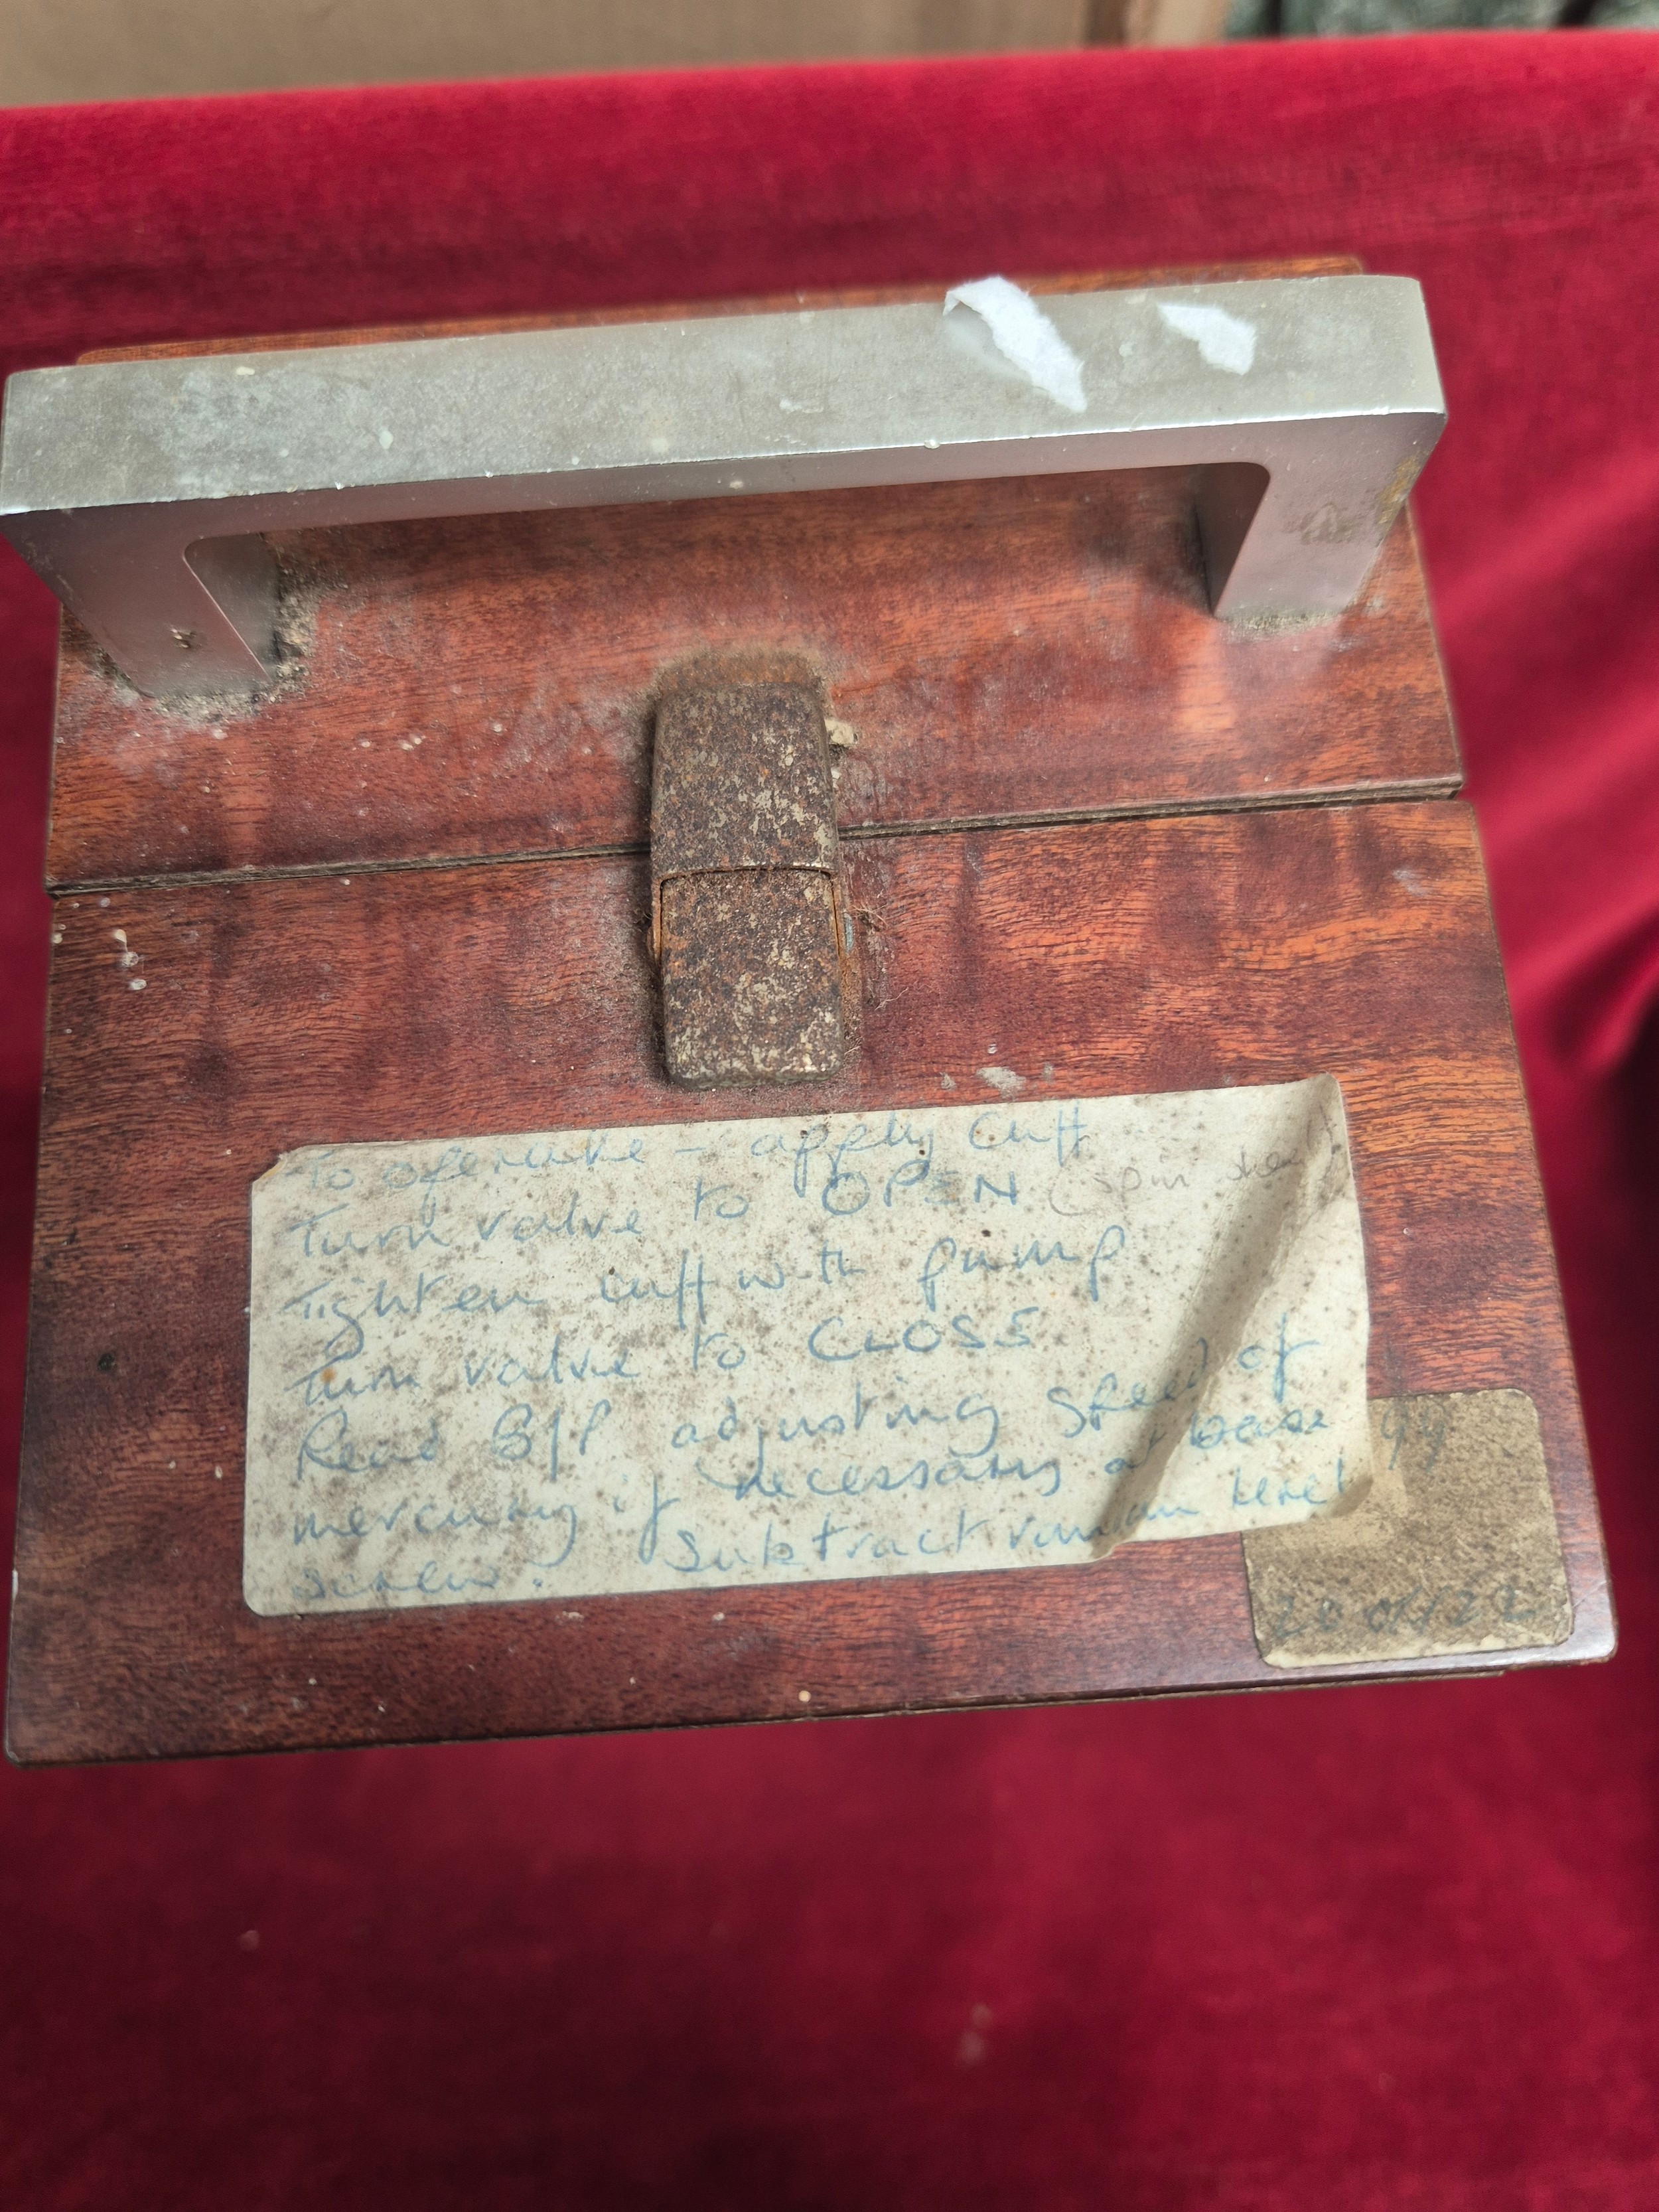 To operate - apply Cuff
Turn valve to OPEN (spin
Tighten cuff with pump
Turn valve to CLOSE
Read B/P adjusting speed of
mercury if necessary at base
screw. Subtract level
99